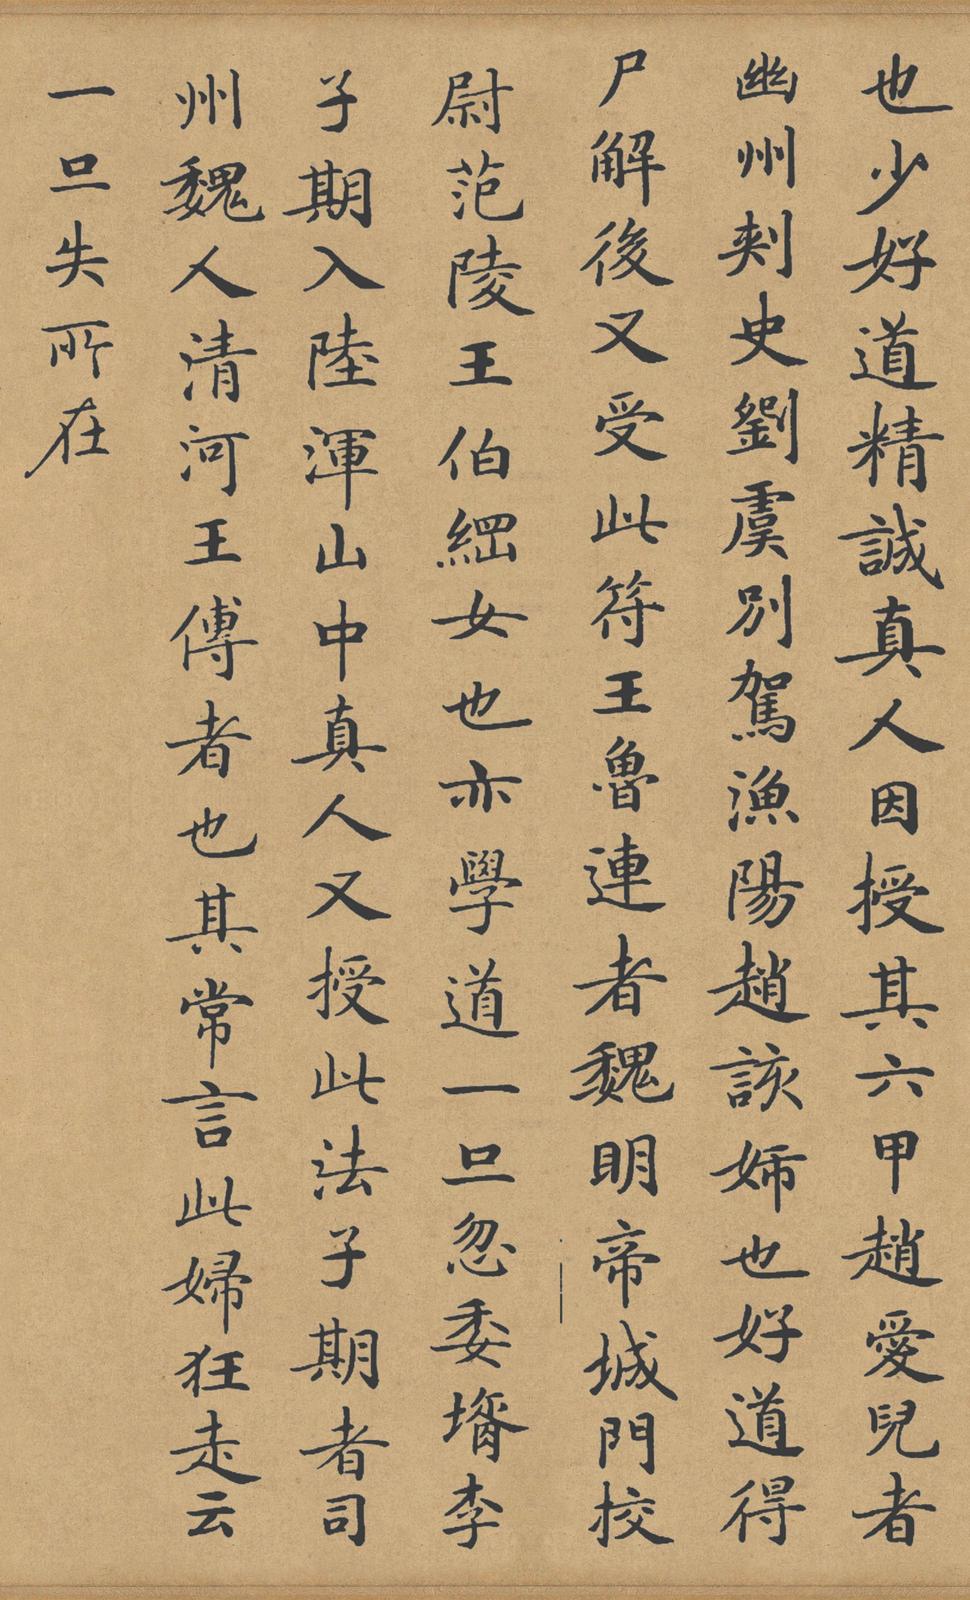 也少好道精誠真人因授其六甲趙愛兒者
幽州刾史劉虞別駕漁陽趙該姉也好道得
尸解後又受此符王魯連者魏明帝城門校
尉范陵王伯綱女也亦學道一旦忽委壻李
子期入陸渾山中真人又授此法子期者司
州魏人清河王傅者也其常言此婦狂走云
一旦失所在